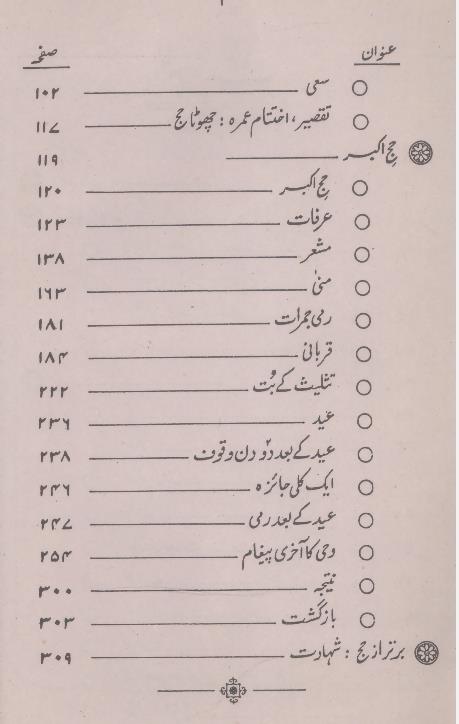 عنوان صفحہ
سعی ۱۰۲
تقصیر، اختتام عمرہ : چھوٹا حج ۱۱۷
حجِ اکبر ۱۱۹
حجِ اکبر ۱۲۰
عرفات ۱۲۳
مشعر ۱۳۸
منیٰ ۱۶۳
رمی جمرات ۱۸۱
قربانی ۱۸۴
تثلیث کے بُت ۲۲۲
عید ۲۳۶
عید کے بعد دو دن وقوف ۲۳۸
ایک کلی جائزہ ۲۴۶
عید کے بعد رمی ۲۴۷
وحی کا آخری پیغام ۲۵۴
نتیجہ ۳۰۰
بازگشت ۳۰۳
برتر از حج : شہادت ۳۰۹